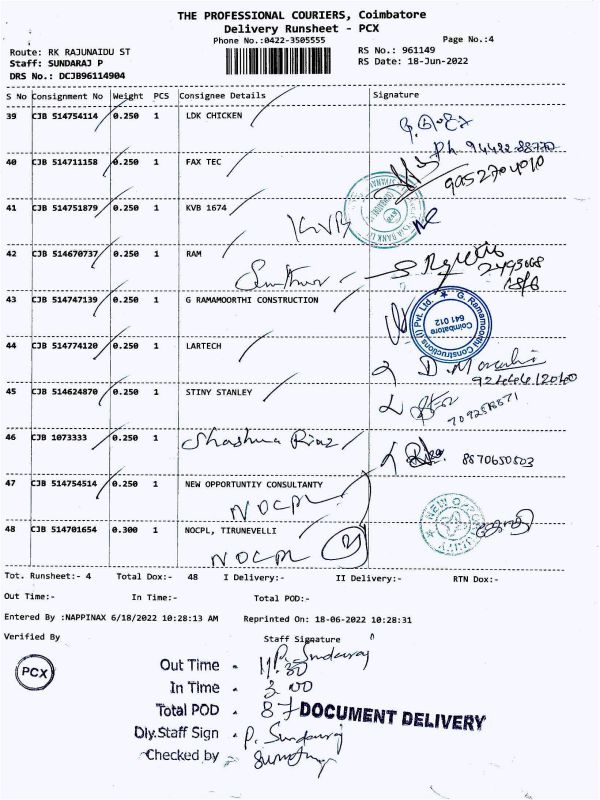 THE PROFESSIONAL COURIERS, Coimbatore
Delivery Runsheet - PCX
Phone No.:0422-3505555
Page No.:4
Route: RK RAJUNAIDU ST
RS No.: 961149
Staff: SUNDARAJ P
RS Date: 18-Jun-2022
DRS No.: DCJB96114904
S No Consignment No Weight PCS Consignee Details Signature
39 CJB 514754114 0.250 1 LDK CHICKEN
Ph 94422 88770
40 CJB 514711158 0.250 1 FAX TEC
9052704010
41 CJB 514751879 0.250 1 KVB 1674
KVB
42 CJB 514670737 0.250 1 RAM
43 CJB 514747139 0.250 1 G RAMAMOORTHI CONSTRUCTION
G. Ramamoorthi Constructions (I) Pvt. Ltd.
Coimbatore
641 012
44 CJB 514774120 0.250 1 LARTECH
45 CJB 514624870 0.250 1 STINY STANLEY
46 CJB 1073333 0.250 1
8870650503
47 CJB 514754514 0.250 1 NEW OPPORTUNTIY CONSULTANTY
NOCPL
48 CJB 514701654 0.300 1 NOCPL, TIRUNEVELLI
NOCPL
Tot. Runsheet:- 4 Total Dox:- 48 I Delivery:- II Delivery:- RTN Dox:-
Out Time:- In Time:- Total POD:-
Entered By :NAPPINAX 6/18/2022 10:28:13 AM Reprinted On: 18-06-2022 10:28:31
Verified By Staff Signature
PCX
P. Sundaraj
Out Time - 11.30
In Time - 3.00
Total POD - 87
DOCUMENT DELIVERY
Dly.Staff Sign - P. Sundaraj
Checked by